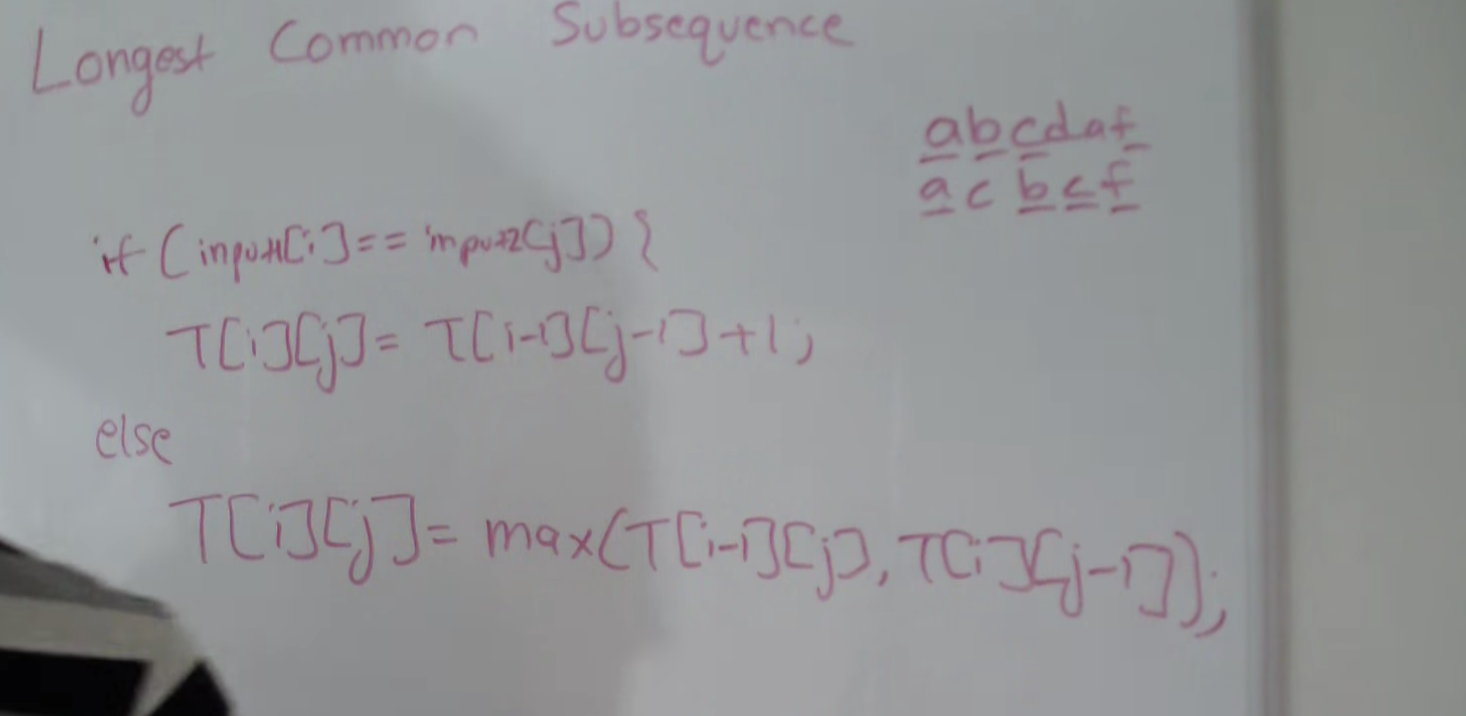 Longest Common Subsequence
abcdaf
acbcf
if (input1[i]== input2[j]) {
T[i][j]= T[i-1][j-1]+1;
else
T[i][j]= max(T[i-1][j], T[i][j-1]);